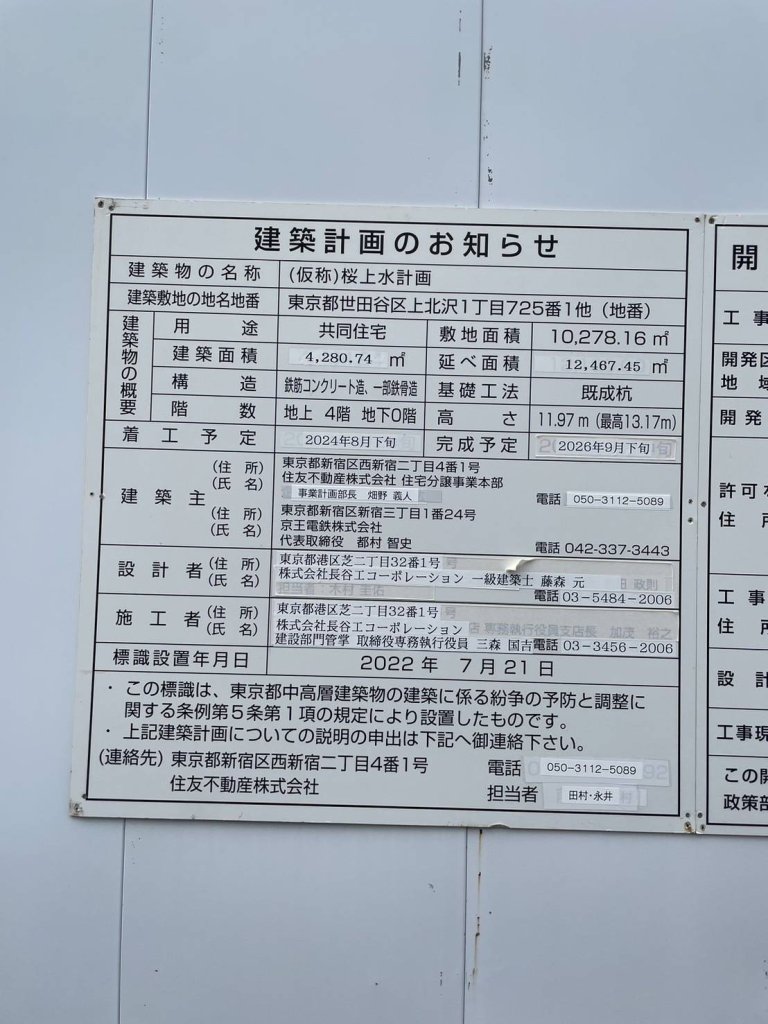 建築計画のお知らせ
建築物の名称 (仮称)桜上水計画
建築敷地の地名地番 東京都世田谷区上北沢1丁目725番1他（地番）
建築物の概要
用途 共同住宅 敷地面積 10,278.16㎡
建築面積 4,280.74㎡ 延べ面積 12,467.45㎡
構造 鉄筋コンクリート造、一部鉄骨造 基礎工法 既成杭
階数 地上 4階 地下0階 高さ 11.97m（最高13.17m）
着工予定 2024年8月下旬 完成予定 2026年9月下旬
建築主
(住所) 東京都新宿区西新宿二丁目4番1号
(氏名) 住友不動産株式会社 住宅分譲事業本部
事業計画部長 畑野 義人 電話 050-3112-5089
(住所) 東京都新宿区新宿三丁目1番24号
(氏名) 京王電鉄株式会社
代表取締役 都村 智史 電話 042-337-3443
設計者 (住所) 東京都港区芝二丁目32番1号
(氏名) 株式会社長谷工コーポレーション 一級建築士 藤森 元
電話 03-5484-2006
施工者 (住所) 東京都港区芝二丁目32番1号
(氏名) 株式会社長谷工コーポレーション
建設部門管掌 取締役専務執行役員 三森 国吉 電話 03-3456-2006
標識設置年月日 2022年 7月21日
・この標識は、東京都中高層建築物の建築に係る紛争の予防と調整に
関する条例第5条第1項の規定により設置したものです。
・上記建築計画についての説明の申出は下記へ御連絡下さい。
(連絡先) 東京都新宿区西新宿二丁目4番1号 電話 050-3112-5089
住友不動産株式会社 担当者 田村・永井
開
工事
開発区
地域
開発
許可
住所
工事
住所
設計
工事現
この開
政策部